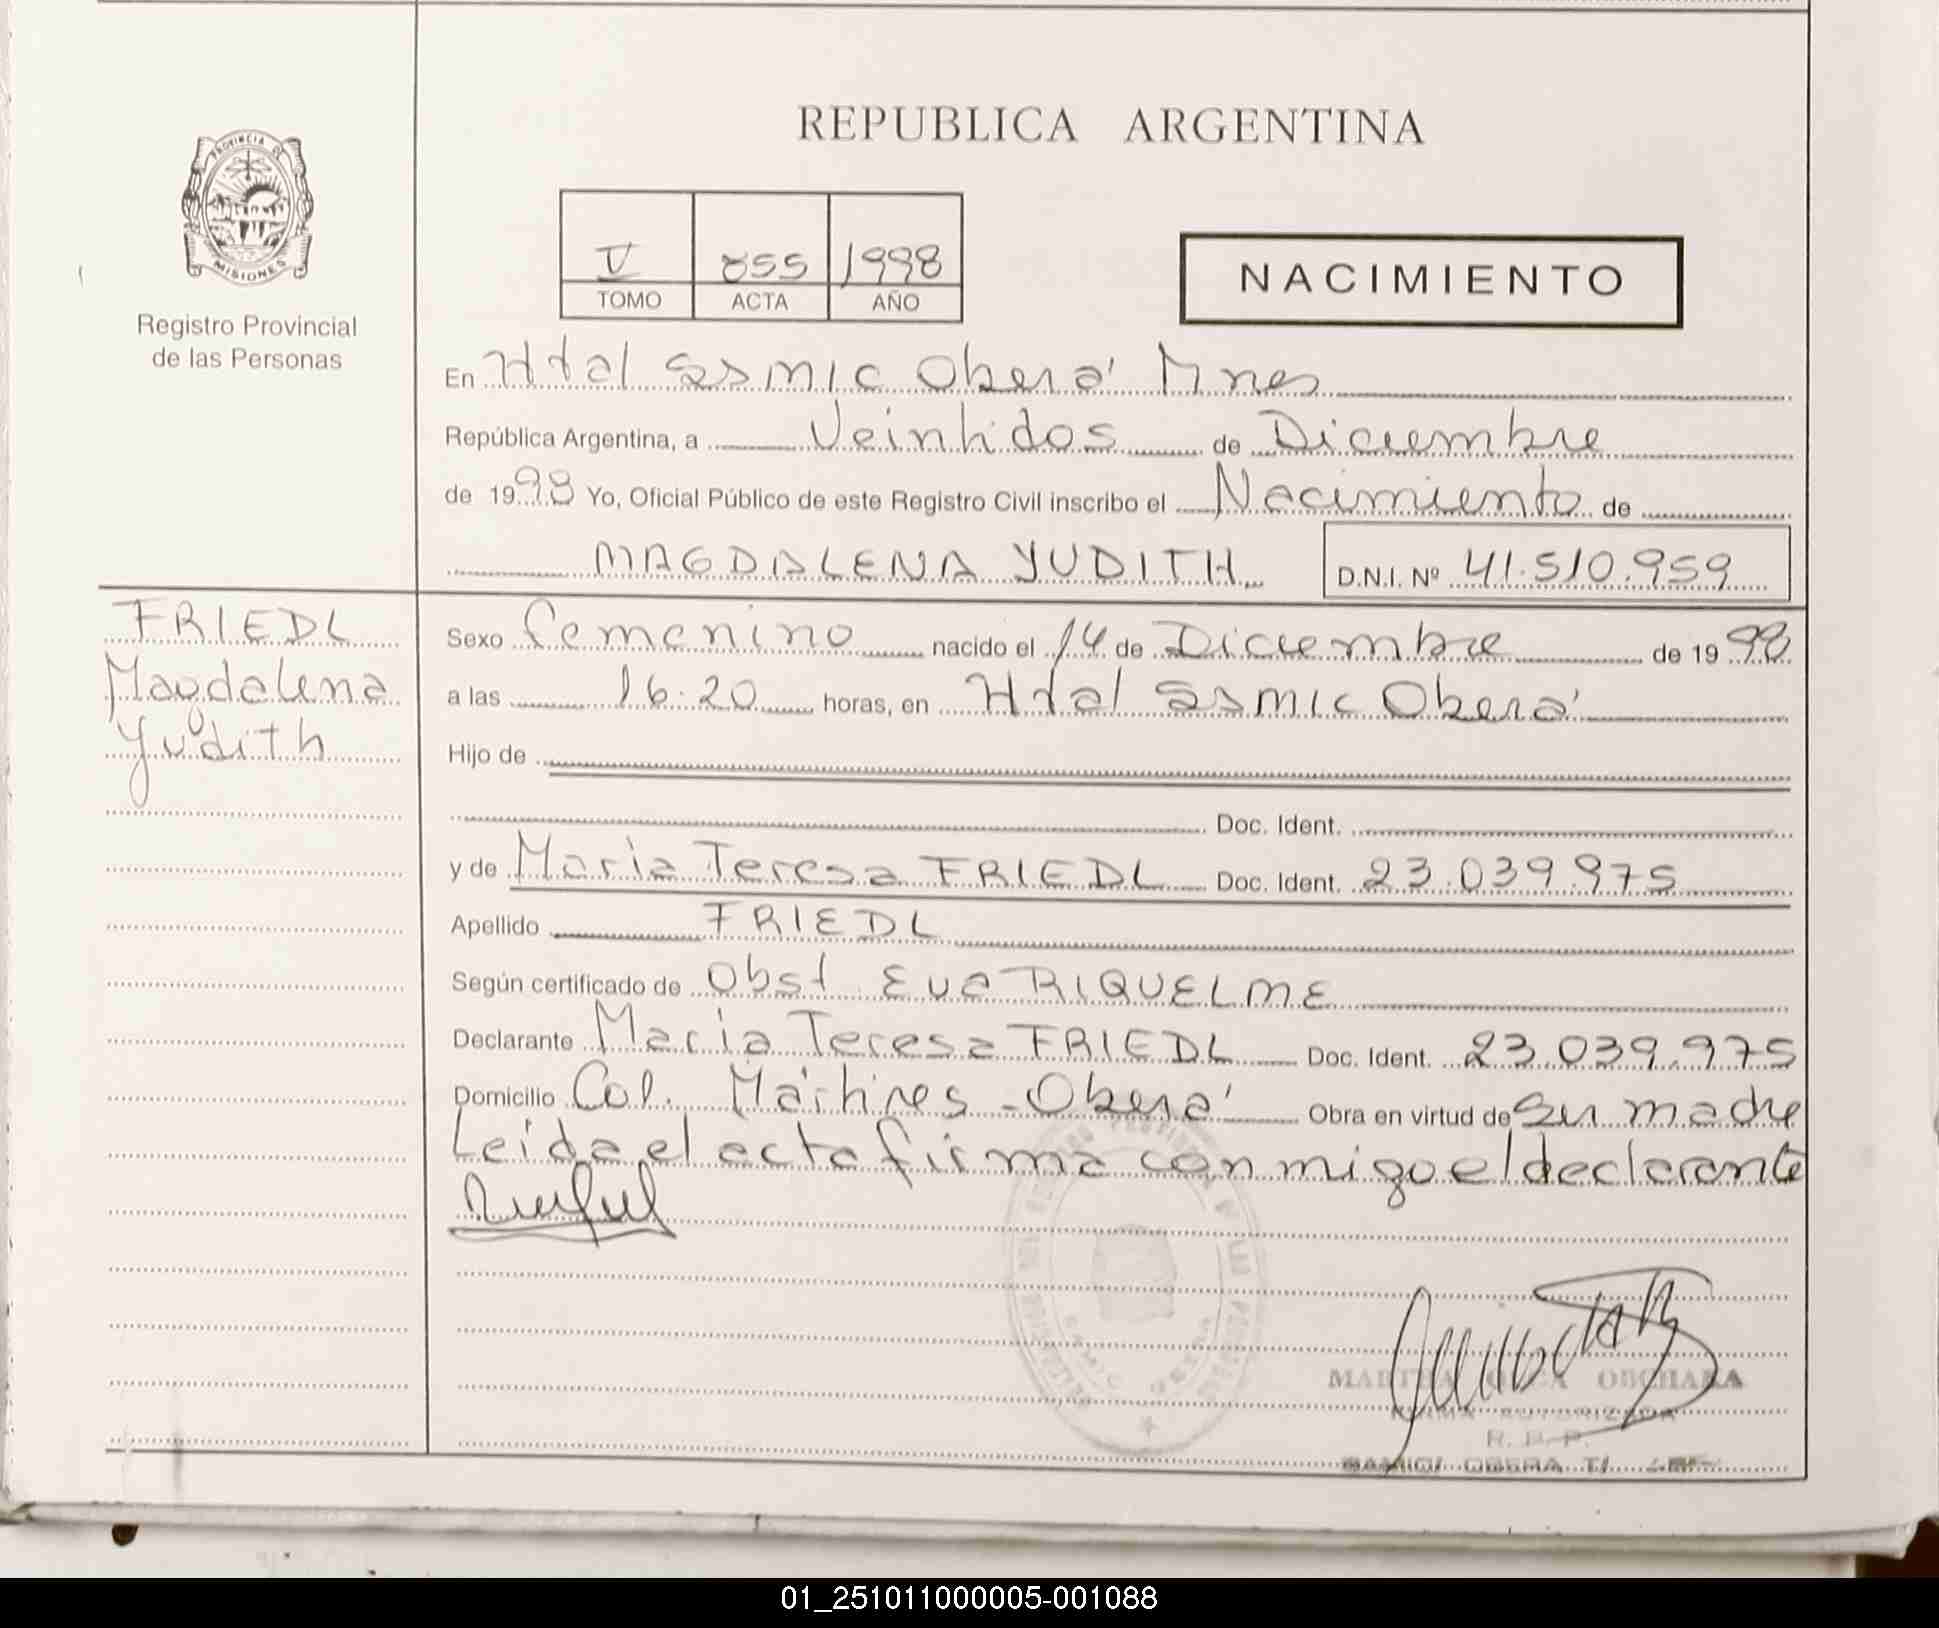 REPUBLICA ARGENTINA
PROVINCIA DE
MISIONES
Registro Provincial
de las Personas
V 855 1998
TOMO ACTA AÑO
NACIMIENTO
En Htal SSMIC Oberá Mnes
República Argentina, a Veintidos de Diciembre
de 1998 Yo, Oficial Público de este Registro Civil inscribo el Nacimiento de
MAGDALENA YUDITH D.N.I. Nº 41.510.959
FRIEDL
Magdalena
Yudith
Sexo Femenino nacido el 14 de Diciembre de 1998
a las 16.20 horas, en Htal SSMIC Oberá
Hijo de
Doc. Ident.
y de Maria Teresa FRIEDL Doc. Ident. 23.039.975
Apellido FRIEDL
Según certificado de Obst Eva RIQUELME
Declarante Maria Teresa FRIEDL Doc. Ident. 23.039.975
Domicilio Col. Mártires - Oberá Obra en virtud de Ser madre
Leida el acta firma conmigo el declarante
MARTHA OBCHARA
FIRMA AUTORIZADA
R. P. P.
SAMIC/ OBERA
01_251011000005-001088